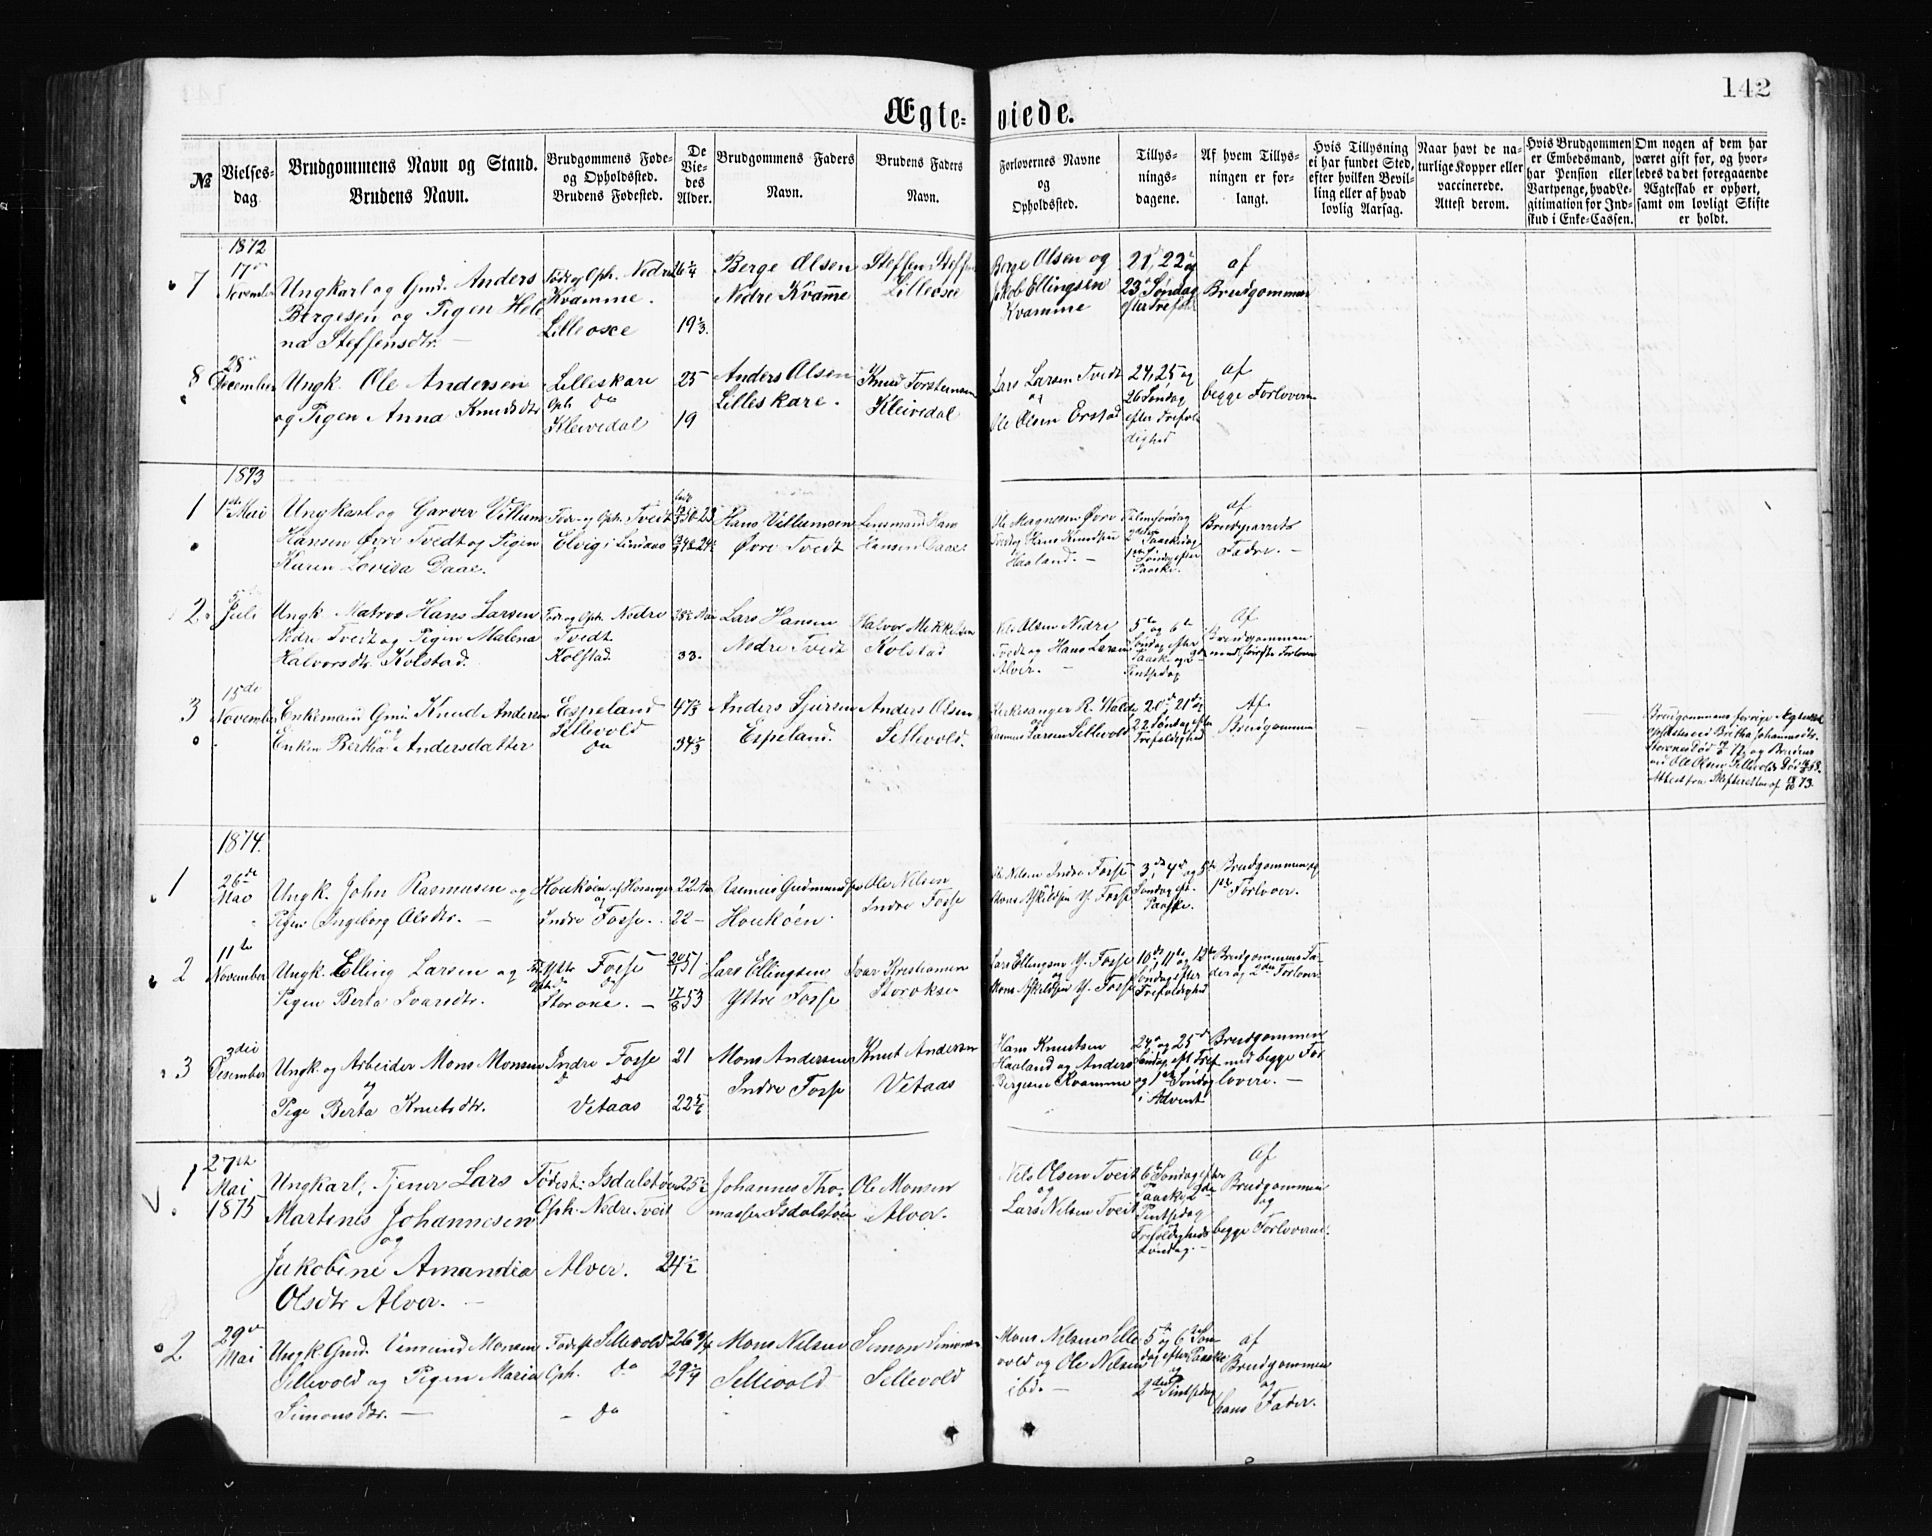 142
Ægte= viede.
№
Vielses-
dag.
Brudgommens Navn og Stand.
Brudens Navn.
Brudgommens Føde-
og Opholdssted.
Brudens Fødested.
De
Vie-
des
Alder.
Brudgommens Faders
Navn.
Brudens Faders
Navn.
Forlovernes Navne
og
Opholdssted.
Tillys-
nings-
dagene.
Af hvem Tillys-
ningen er for-
langt.
Hvis Tillysning
ei har fundet Sted,
efter hvilken Bevil-
ling eller af hvad
lovlig Aarsag.
Naar havt de na-
turlige Kopper eller
vaccinerede.
Attest derom.
Hvis Brudgommen
er Embedsmand,
har Pension eller
Vartpenge, hvad Le-
gitimation for Ind-
skud i Enke-Cassen.
Om nogen af dem har
været gift før, og hvor-
ledes da det foregaaende
Ægteskab er ophørt,
samt om lovligt Skifte
er holdt.
1872
7
17
November
Ungkarl og Gmd. Anders
Bergesen og Pigen Hele
na Steffensdtr.
Føde og Oph. Nedre
Kvamme.
Lilleosee
26 1/4
19 2/3
Berge Olsen
Nedre Kvamme
Steffen Steffen
Lilleosee
Berge Olsen og
Jakob Ellingsen
Kvamme
21, 22 og
23 Søndag
efter Trefold
af
Brudgommen
8
28
December
Ungk. Ole Andersen
og Pigen Anna Knudsdtr
Lilleskare
Oph. Do
Kleivedal
25
19
Anders Olsen
Lilleskare.
Knud Torstensen
Kleivedal
Lars Larsen Tvedt
og
Ole Olsen Erstad
24, 25 og
26 Søndag
efter Trefol
dighed
af
begge Forlovere
1873
1
1ste Mai
Ungkarl og Garver Villum
Hansen Øvre Tvedt og Pigen
Karen Lovisa Daae.
Føde og Oph. Tveit
Elvig i Lindaas
Hans Villumsen
Øvre Tvedt
Lensmand Hans
Hansen Daae
Ole Magnesen Øvre
Tvedt og Hans Knudsen
Haaland.
Palmesøndag
2den Paaskedag
1ste Søndag efter
Paaske.
af
Brudparrets
Fædre.
2
5
Juli
Ungk. Matros Hans Larsen
Nedre Tvedt og Pigen Malena
Halvorsdtr. Kolstad.
Føde og Oph. Nedre
Tvedt.
Kolstad.
33.
Lars Hansen
Nedre Tvedt
Halvor Mikkelsen
Kolstad
Nils Olsen Nedre
Tvedt og Hans Larsen
Alver.
5te og 6te
Søndag efter
Paask. og 2den
Pintsedag
Af
Brudgommen
med første Forlover
3
15de
November
Enkemand Gmd. Knud Anderson
og
Enken Bertha Andersdatter
Espeland
Sellevold
Do
47 2/3
34 2/3
Anders Sjursen
Espeland.
Anders Olsen
Sellevold.
Kirkesanger R. Walde
Rasmus Larsen Sellevold
20de, 21de og
22 Søndag efter
Trefoldighed
Af
Brudgommen
Brudgommens forrige Ægteskab
ophævet ved Britha Johannesdtr.
og Brudens
ved Ole Olsen Sellevold
Attest fra Skifteretten af 73.
1874.
1
26de
Mai
Ungk. John Rasmusen og
Pigen Ingeborg Olsdtr.
Houkøen af Hosanger
og
Indre Fosse.
22
22
Rasmus Gudmundsen
Houkøen
Ole Nilsen
Indre Fosse
Ole Nilsen Indre Fosse
og
Mons Askildsen Y. Fosse
3de, 4de og 5te
Søndag eft.
Paaske.
Brudgommen og
1ste Forlover.
2
11te
November
Ungk. Elling Larsen og
Pigen Berta Ivarsdtr.
Ytre Fosse
Oph. do
Storoxe.
20/1 51
17/8 53
Lars Ellingsen
Yttre Fosse
Ivar Kristiansen
Storoksen
Lars Ellingsen Y. Fosse
og
Mons Askildsen Y. Fosse
10de, 11te og 12te
Søndag efter
Trefoldighed
Brudgommens Fa-
der og 2den Forlover
3
3die
Desember
Ungk. og Arbeider Mons Monsen
og
Pige Berta Knutsdtr.
Indre Fosse
Do Do
Vetaas
21
22 5/6
Mons Andersen
Indre Fosse
Knut Andersen
Vetaas
Hans Knutsen
Haaland og Anders
Bergesen Kvamme
24de og 25de
Søndag eft Tref
og 1ste Søndag
i Advent
Brudgommen
med begge For
lovere.
1
27de
Mai
1875
Ungkarl, Tjener Lars
Martines Johannesen
og
Jakobine Amandia
Olsdtr Alver.
Fødest: Isdalstøen
Oph. Nedre Tveit
Alver.
25 1/2
24 1/2
Johannes Tho-
massen Isdalstøen
Ole Monsen
Alver.
Nils Olsen Tveit
og
Lars Nilsen Tveit
6te Søndag efter
Paaske, 2den
Pintsedag
Trefoldigheds
Søndag.
af
Brudgommen
og
begge Forlovere.
2
29de
Mai
Ungk. Gmd. Simund Monsen
Sellevold og Pigen Maria
Simonsdtr.
Fødest Sellevold
Oph. Do
Do
26 3/4
29 1/4
Mons Nilsen
Sellevold
Simon Simonsen
Sellevold
Mons Nilsen Selle
vold og Ole Nilsen
ibd.
5te og 6te Søn
dag efter Paaske
og
2den Pintsedag
af
Brudgommen
og
hans Fader.